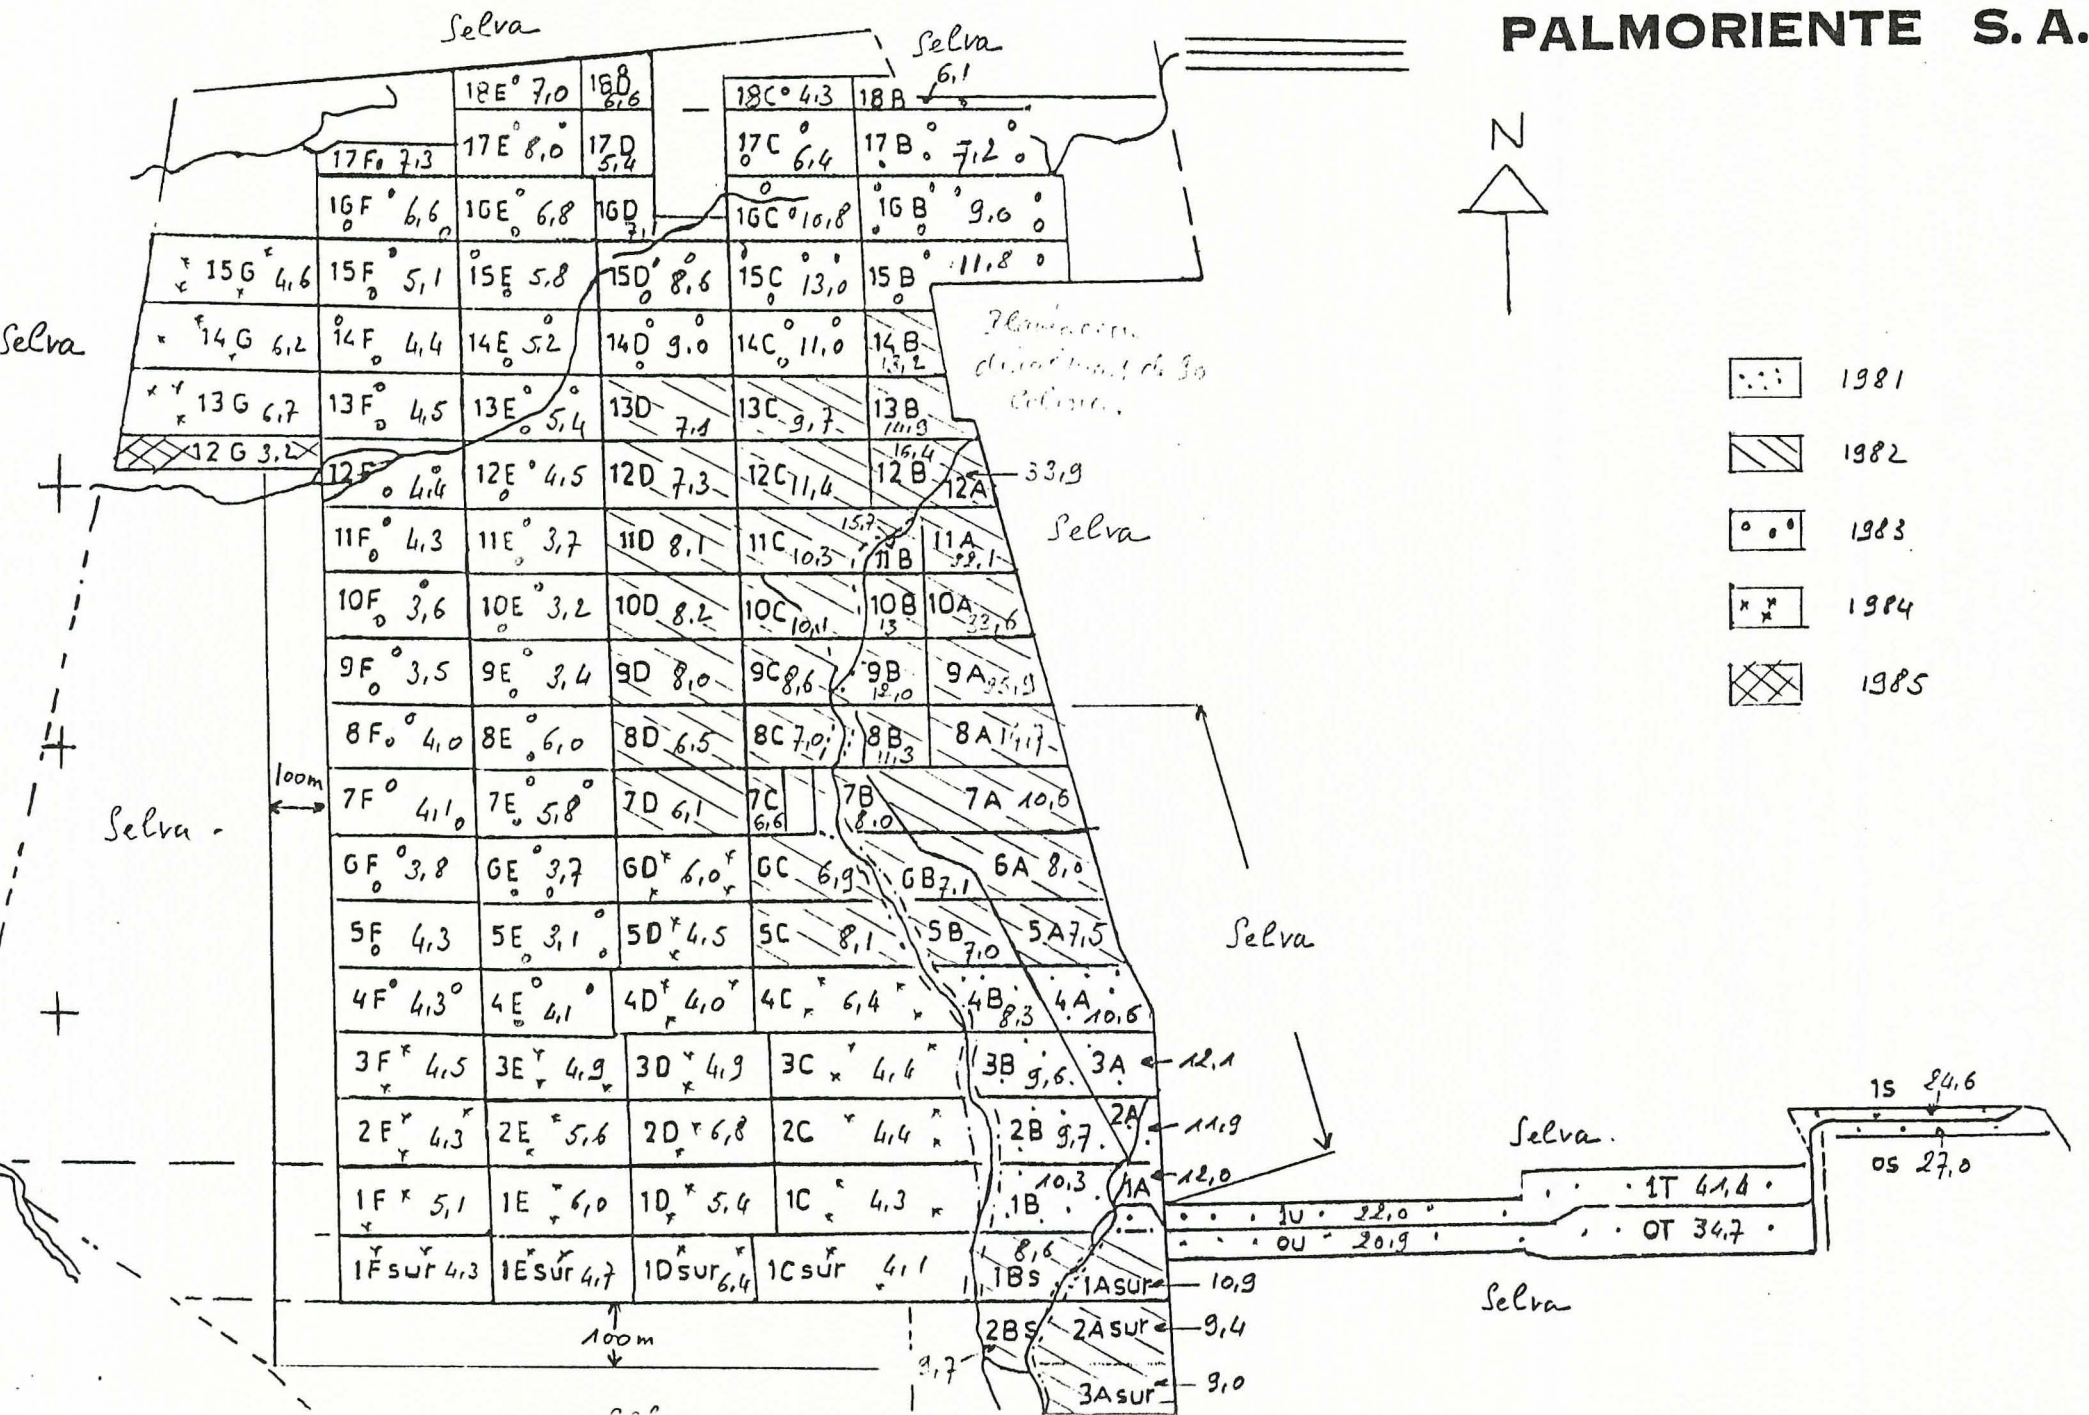 PALMORIENTE S. A.
Selva
Selva
6,1
18E 7,0 18D 6,6 18C 4,3 18B
17F 7,3 17E 8,0 17D 5,4 17C 6,4 17B 7,2
N
16F 6,6 16E 6,8 16D 7,1 16C 10,8 16B 9,0
15G 4,6 15F 5,1 15E 5,8 15D 8,6 15C 13,0 15B 11,8
Selva
14G 6,2 14F 4,4 14E 5,2 14D 9,0 14C 11,0 14B 13,2
13G 6,7 13F 4,5 13E 5,4 13D 7,1 13C 9,7 13B
12G 3,2 12F 4,4 12E 4,5 12D 7,3 12C 11,4 16,4 12B 12A 33,9
Selva
11F 4,3 11E 3,7 11D 8,1 11C 10,3 15,7 11B 11A
10F 3,6 10E 3,2 10D 8,2 10C 10,1 10B 13 10A 33,6
9F 3,5 9E 3,4 9D 8,0 9C 8,6 9B 12,0 9A
8F 4,0 8E 6,0 8D 6,5 8C 7,0 8B 11,3 8A
100m
7F 4,1 7E 5,8 7D 6,1 7C 6,6 7B 8,0 7A 10,6
Selva
6F 3,8 6E 3,7 6D 6,0 6C 6,9 6B 7,1 6A 8,0
5F 4,3 5E 3,1 5D 4,5 5C 8,1 5B 7,0 5A 7,5
Selva
4F 4,3 4E 4,1 4D 4,0 4C 6,4 4B 8,3 4A 10,6
3F 4,5 3E 4,9 3D 4,9 3C 4,4 3B 9,6 3A 12,1
2F 4,3 2E 5,6 2D 6,8 2C 4,4 2B 9,7 2A 11,9
1F 5,1 1E 6,0 1D 5,4 1C 4,3 1B 10,3 1A 12,0
1F sur 4,3 1E sur 4,7 1D sur 6,4 1C sur 4,1 8,6 1Bs 1A sur 10,9
100m
2Bs 9,7 2A sur 9,4
3A sur 9,0
1981
1982
1983
1984
1985
1S 24,6
0S 27,0
Selva
1T 41,4
0T 34,7
1U 22,0
0U 20,9
Selva